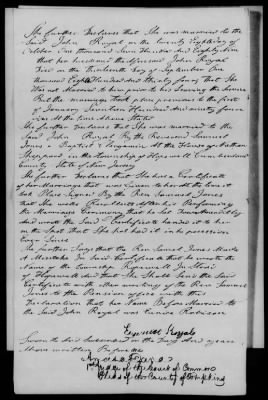 She further declares that she was married to the
said John Royal on the twenty Eighth day of
one thousand seven Hundred and Eighty five
that her husband the aforesaid John Royal
died on the thirteenth day of September one
thousand Eight Hundred and thirty four, that she
Was not Married to him prior to his leaving the service
But the marriage took place previous to the first
of January seventeen Hundred and ninety four
viz At the time above stated
She further declares that she was married to the
said John Royal By the Reverend Samuel
Jones a Baptist Clergyman At the House of Nathan
Sheppard in the township of Hopewell Cumberland
County State of New Jersey
She further declares that she had a Certificate
of her Marriage that was given to her at the time &
that was signed By the Rev Samuel Jones
that she well Recollects after his Performing
the Marriage Ceremony that he sat Immediately
and wrote the said Certificate handed it to her
on the spot that she has had it in her possession
Ever since
She further says that the Rev Samuel Jones Made
A Mistake In said Certificate that he wrote the
Name of the township Hopewell In stead
of Hopewell and that she sends the said
Certificate with this of the Rev Samuel
Jones to the Pension office with this
Declaration that her Name Before Married to
the said John Royal was Eunice Robinson
Eunice Royal
Sworn to and subscribed on the day and year
above written Before me
Judge of the Court of Common
Pleas of the County of Tompkins